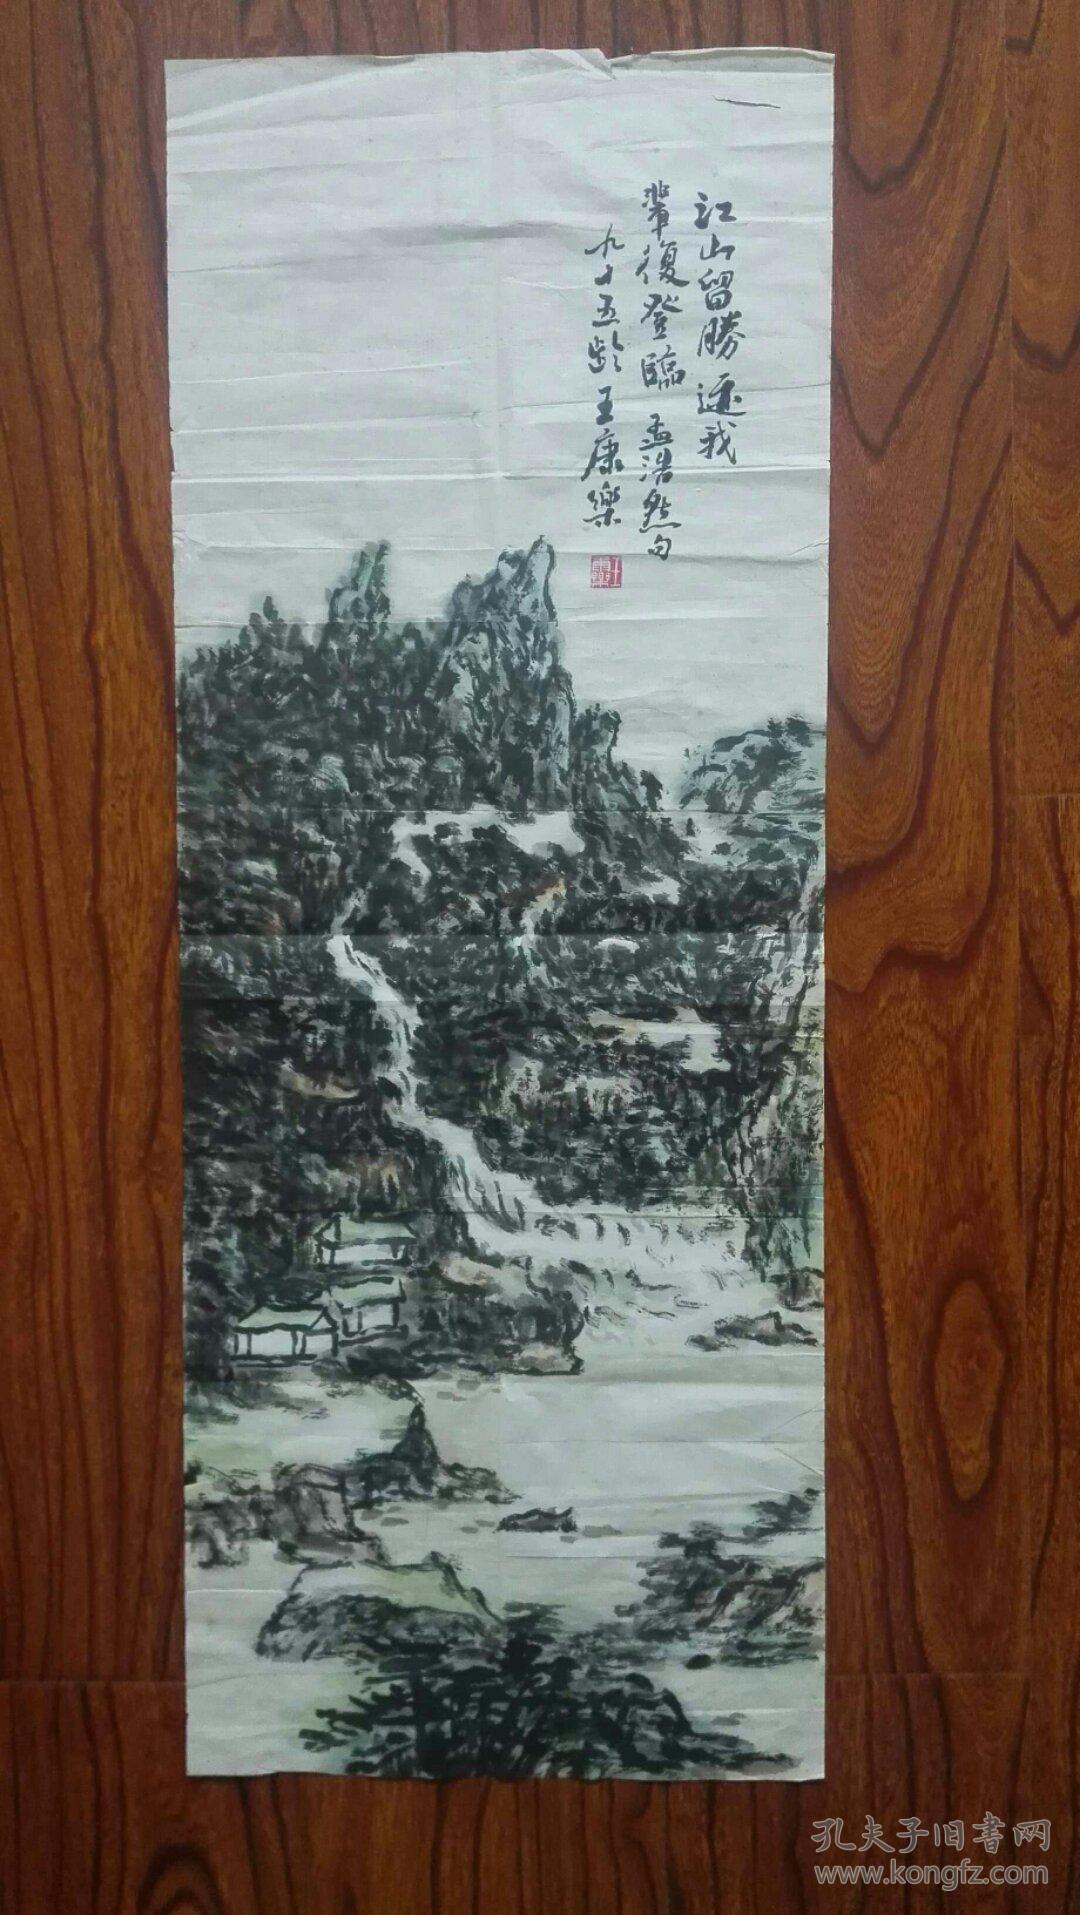 江山留勝迹我
輩復登臨 孟浩然句
九十五齡王康樂
王康樂
孔夫子旧書网
www.kongfz.com